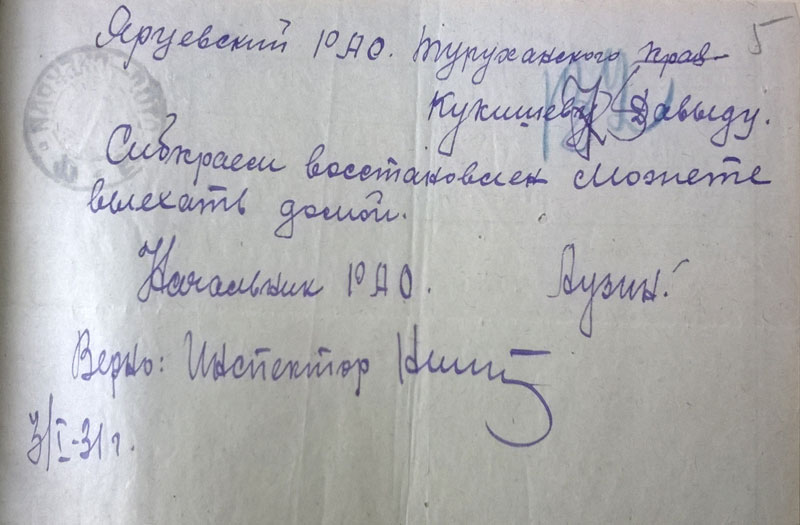 5
Ярцевский РАО. Туруханского края
Кукишеву Давыду.
Сибкраем восстановлен можете
выехать домой.
Начальник РАО. Аузин.
Верно: Инспектор
3/I-31 г.